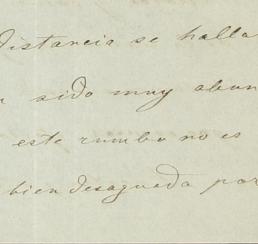 distancia se halla
sido muy abun
este rumbo no es
bien desaguada por